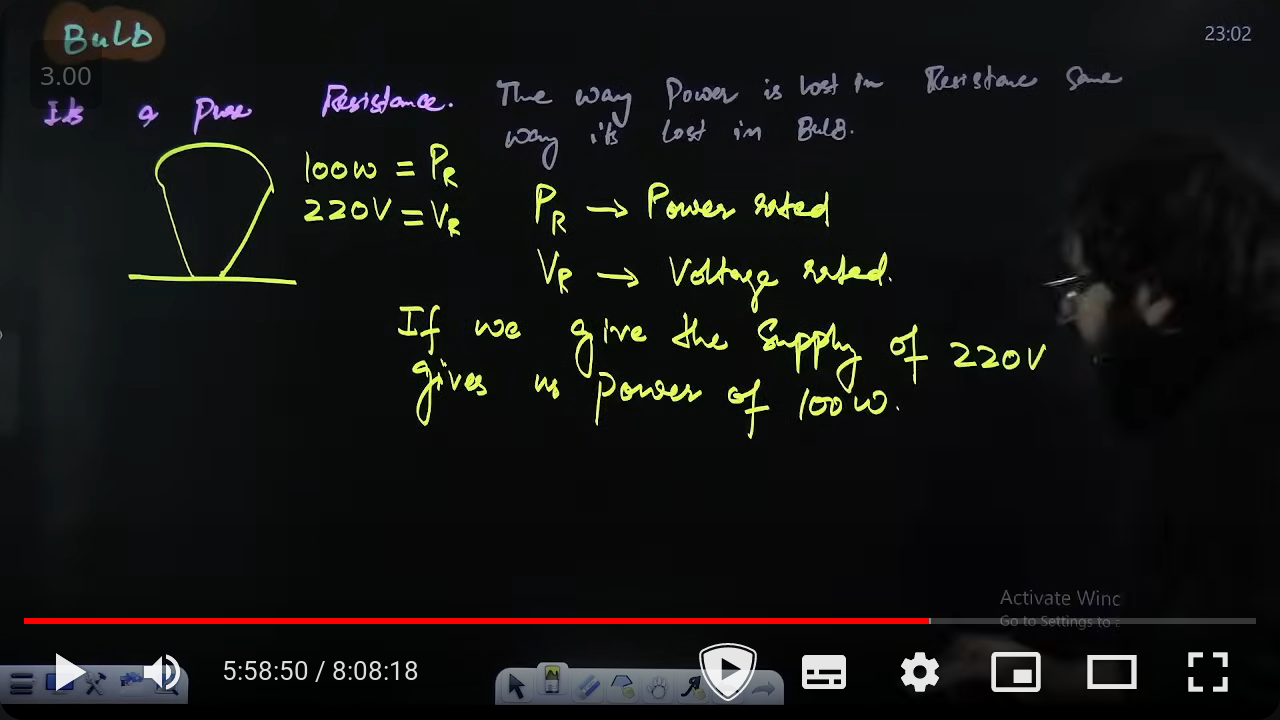 Bulb
23:02
3.00
Its a Pure Resistance.
The way Power is lost in Resistance same
way its lost in Bulb.
100W = PR
220V = VR
PR → Power rated
VR → Voltage rated.
If we give the supply of 220V
gives us power of 100W.
Activate Winc
Go to Settings to a
5:58:50 / 8:08:18